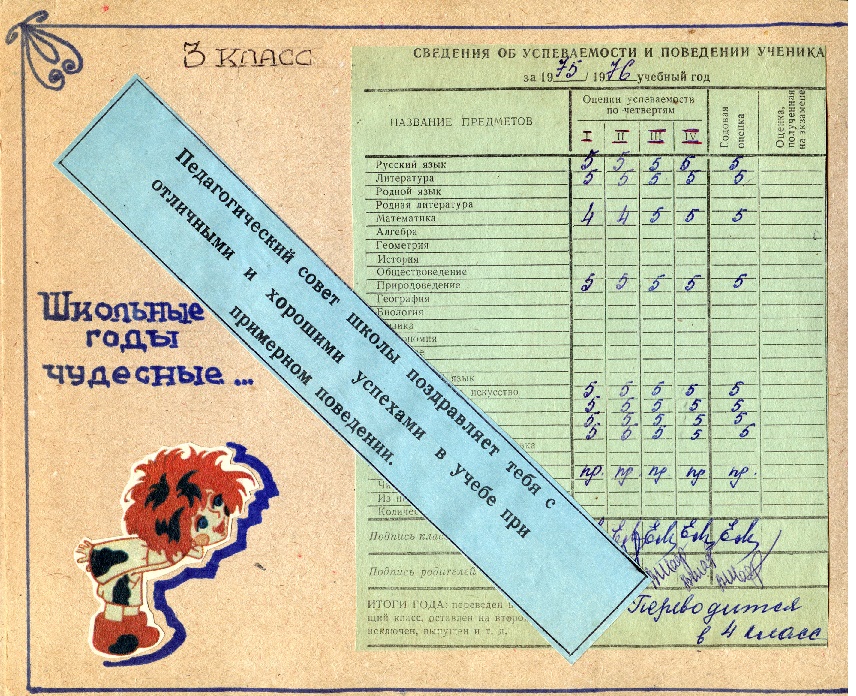 3 класс
Школьные
годы
чудесные...
Педагогический совет школы поздравляет тебя с
отличными и хорошими успехами в учебе при
примерном поведении.
СВЕДЕНИЯ ОБ УСПЕВАЕМОСТИ И ПОВЕДЕНИИ УЧЕНИКА
за 1975/1976 учебный год
НАЗВАНИЕ ПРЕДМЕТОВ
Оценки успеваемости
по четвертям
I II III IV
Годовая
оценка
Оценка,
полученная
на экзамене
Русский язык 5 5 5 5 5
Литература 5 5 5 5 5
Родной язык
Родная литература
Математика 4 4 5 5 5
Алгебра
Геометрия
История
Обществоведение
Природоведение 5 5 5 5 5
География
Биология
язык
искусство 5 5 5 5 5
5 5 5 5 5
5 5 5 5 5
5 5 5 5 5
пр. пр. пр. пр. пр.
Из
Количес
Подпись клас
Подпись родителей
ИТОГИ ГОДА: переведен в
щий класс, оставлен на второ
исключен, выпущен и т. д.
Переводится
в 4 класс